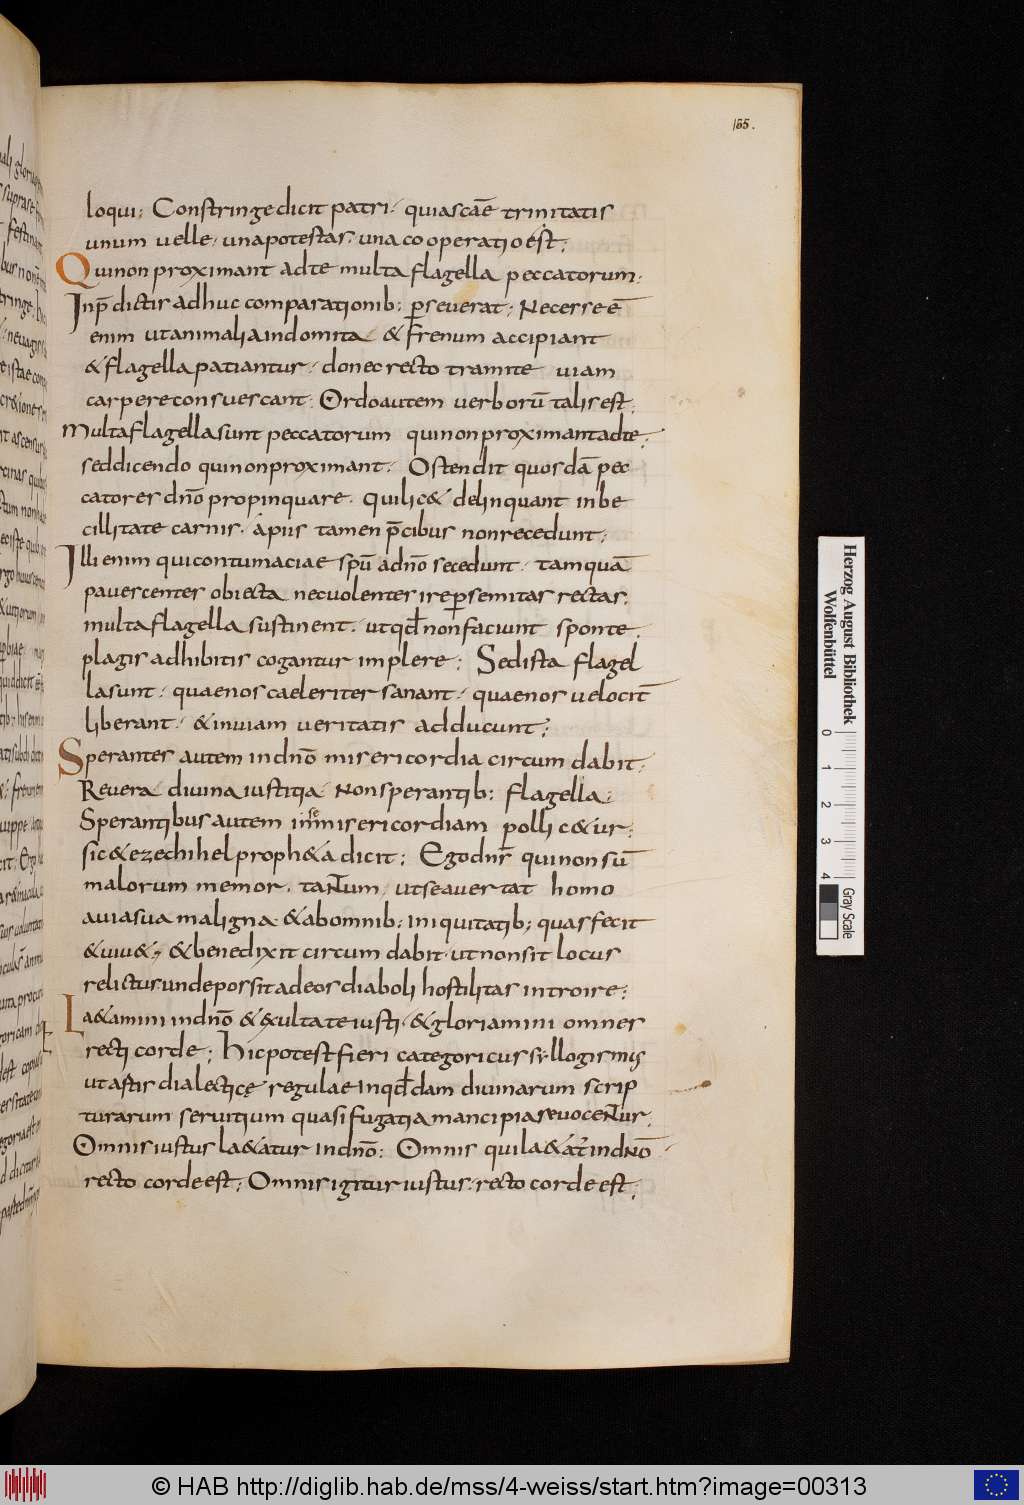 155.
loqui; Constringe dicit patri· quia scāe trinitatis
unum uelle· una potestas· una cooperatio ēst;
Qui non proximant ad te multa flagella peccatorum·
In p̄dictis adhuc comparationib; ꝑseuerat· Necesse ē
enim ut animalia indomita & frenum accipiant
& flagella patiantur· donec recto tramite uiam
carpere consuescant· Ordo autem uerborū talis est;
Multa flagella sunt peccatorum qui non proximant ad te;
sed dicendo qui non proximant· Ostendit quosdā pec
catores dn̄o propinquare· qui lic& delinquant inbe
cillitate carnis· a piis tamen p̄cibus non recedunt;
Illi enim qui contumaciae sp̄u a dn̄o secedunt· tamquā
pauescentes obiecta nec uolentes ire ꝑ semitas rectas·
multa flagella sustinent· ut qđ non faciunt sponte·
plagis adhibitis cogantur implere; Sed ista flagel
la sunt· quae nos caeleriter sanant· quae nos uelocit̄
liberant· & in uiam ueritatis adducunt;
Sperantes autem in dn̄o misericordia circum dabit;
Reuera diuina iustitia· Non sperantib; flagella·
Sperantibus autem in se misericordiam pollic&ur;
sic & ezechihel proph&a dicit; Ego dn̄s qui non sū
malorum memor· taNtum ut se auertat homo
a uia sua maligna· & ab omnib; iniquitatib; quas fecit
& uiu&· & benedixit circum dabit· ut non sit locus
relictus unde possit ad eos diaboli hostilitas introire;
La&amini in dn̄o & exultate iusti· & gloriamini omnes
recti corde; Hic potest fieri categoricus syllogismus
ut artis dialecticę regulae in qđdam diuinarum scrip
turarum seruitium quasi fugatia mancipia reuoceNtur·
Omnis iustus la&atur in dn̄o; Omnis qui la&at̄ in dn̄o
recto corde est; Omnis igitur iustus· recto corde est;
Herzog August Bibliothek
Wolfenbüttel
0 1 2 3 4
Gray Scale
© HAB http://diglib.hab.de/mss/4-weiss/start.htm?image=00313